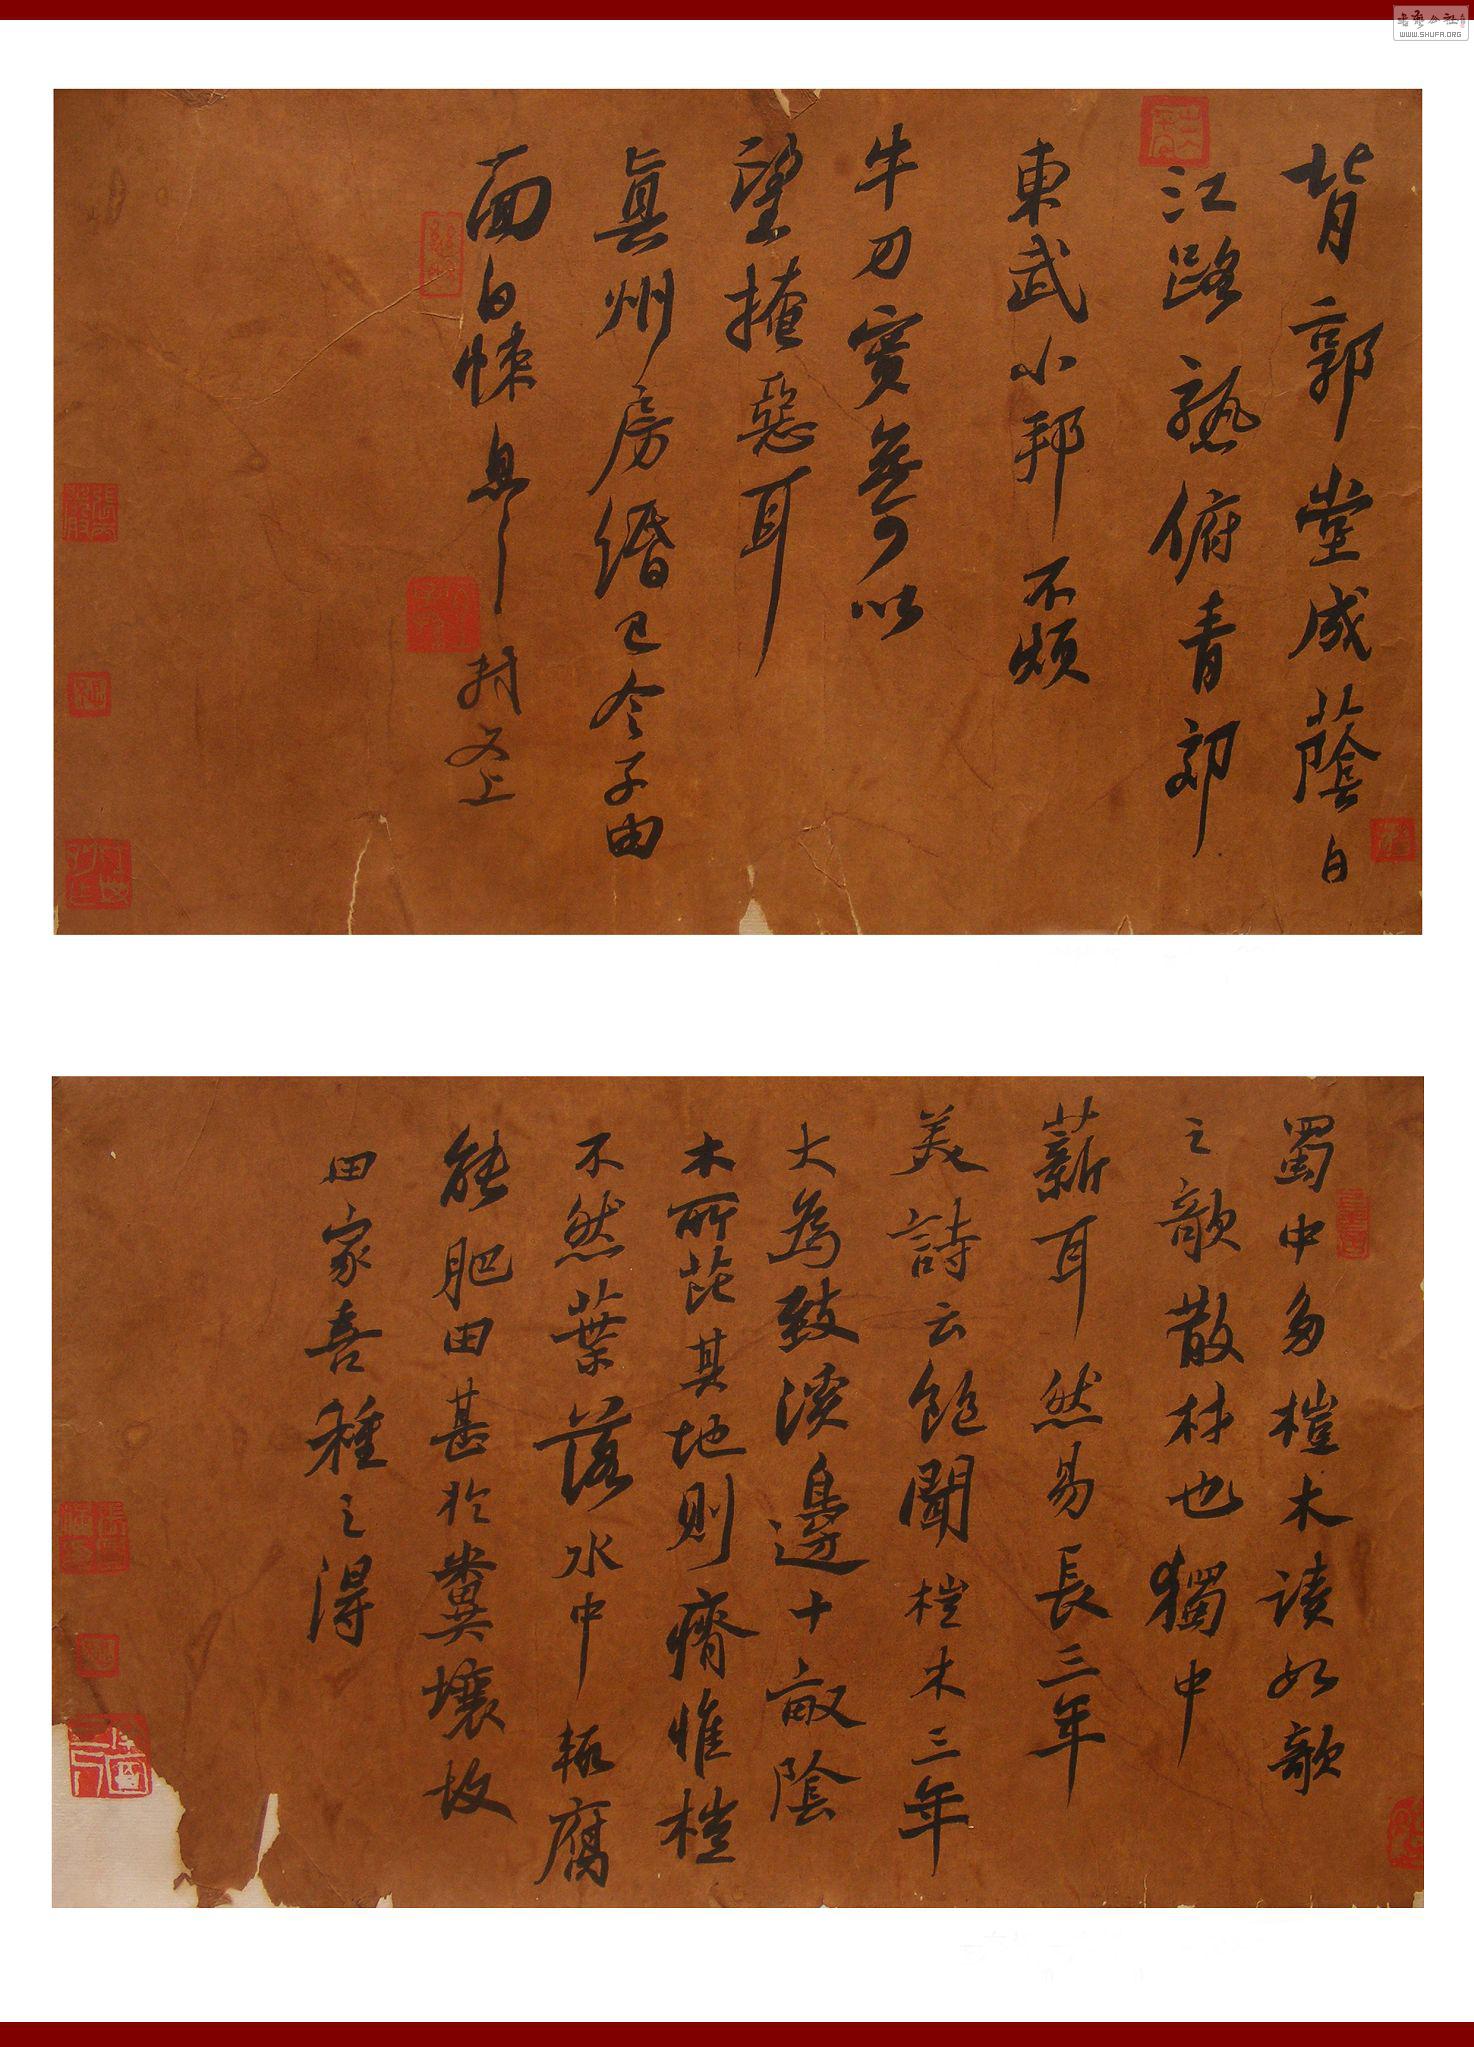 背郭堂成蔭白
江路熟俯青郊
東武小邦不煩
牛刀實無可以
望掩惡耳
真州房緡已令子由
面白悚息
封
上
蜀中多榿木讀如欹
之欹散材也獨中
薪耳然易長三年
美詩云飽聞榿木三年
大為致溪邊十畝陰
木所芘其地則瘠惟榿
不然葉落水中輒腐
能肥田甚於糞壤故
田家喜種之得
WWW.SHUFA.ORG